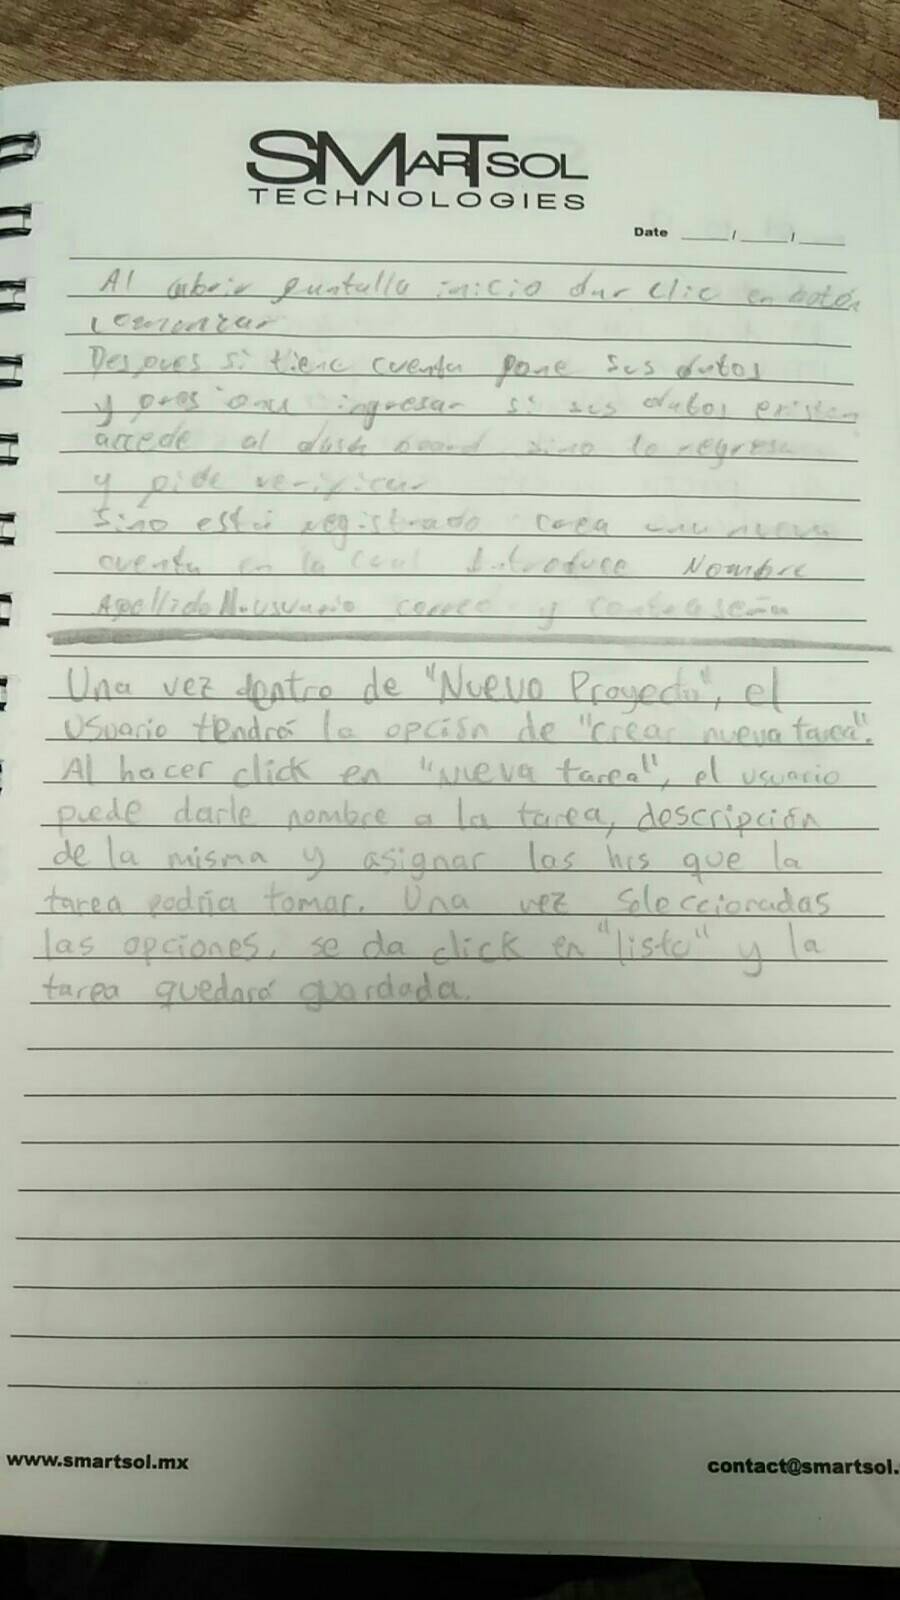 SMARTSOL
TECHNOLOGIES
Date ____/____/____
Al abrir pantalla inicio dar clic en botón
comenzar
Despues si tiene cuenta pone sus datos
y presiona ingresar si sus datos existen
accede al dash board sino lo regresa
y pide verificar
Sino está registrado crea una nueva
cuenta en la cual Introduce Nombre
Apellido N.usuario correo y contraseña
Una vez dentro de "Nuevo Proyecto", el
usuario tendrá la opción de "crear nueva tarea".
Al hacer click en "Nueva tarea", el usuario
puede darle nombre a la tarea, descripción
de la misma y asignar las hrs que la
tarea podría tomar. Una vez seleccionadas
las opciones, se da click en "listo" y la
tarea quedará guardada.
www.smartsol.mx
contact@smartsol.